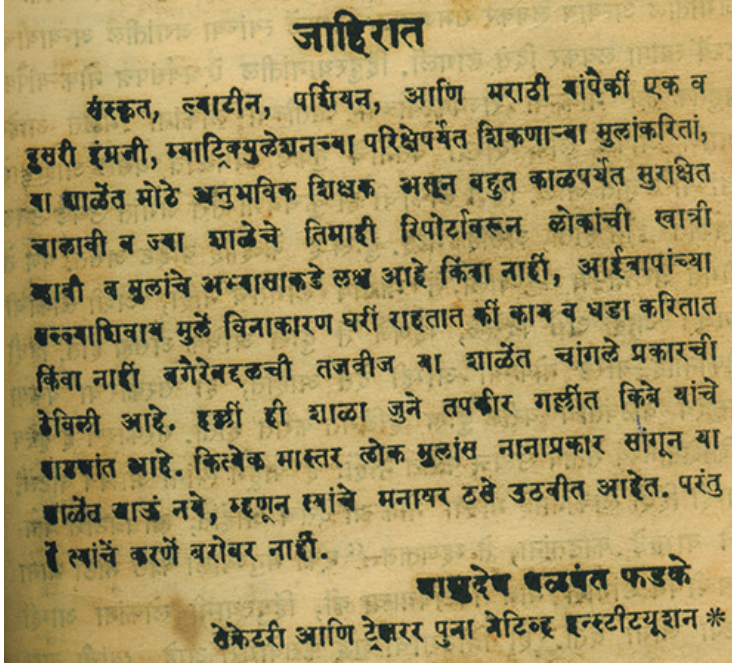 जाहिरात
संस्कृत, ल्याटीन, पर्शियन, आणि मराठी यांपैकीं एक व
दुसरी इंग्रजी, म्याट्रिक्युलेशनच्या परिक्षेपर्यंत शिकणाऱ्या मुलांकरितां,
या शाळेंत मोठे अनुभविक शिक्षक असून बहुत काळपर्यंत सुरक्षित
चालावी व ज्या शाळेचे तिमाही रिपोर्टावरून लोकांची खात्री
व्हावी व मुलांचे अभ्यासाकडे लक्ष आहे किंवा नाहीं, आईबापांच्या
मुलें विनाकारण घरीं राहतात कीं काय व धडा करितात
किंवा नाहीं वगैरेबद्दलची तजवीज या शाळेंत चांगले प्रकारची
ठेविली आहे. हल्लीं ही शाळा जुने तपकीर गल्लींत किबे यांचे
वाड्यांत आहे. कित्येक मास्तर लोक मुलांस नानाप्रकार सांगून या
शाळेंत जाऊं नये, म्हणून त्यांचे मनावर ठसे उठवीत आहेत. परंतु
हें त्यांचें करणें बरोबर नाहीं.
वासुदेव बळवंत फडके
सेक्रेटरी आणि ट्रेझरर पुना नेटिव्ह इन्स्टीट्यूशन *